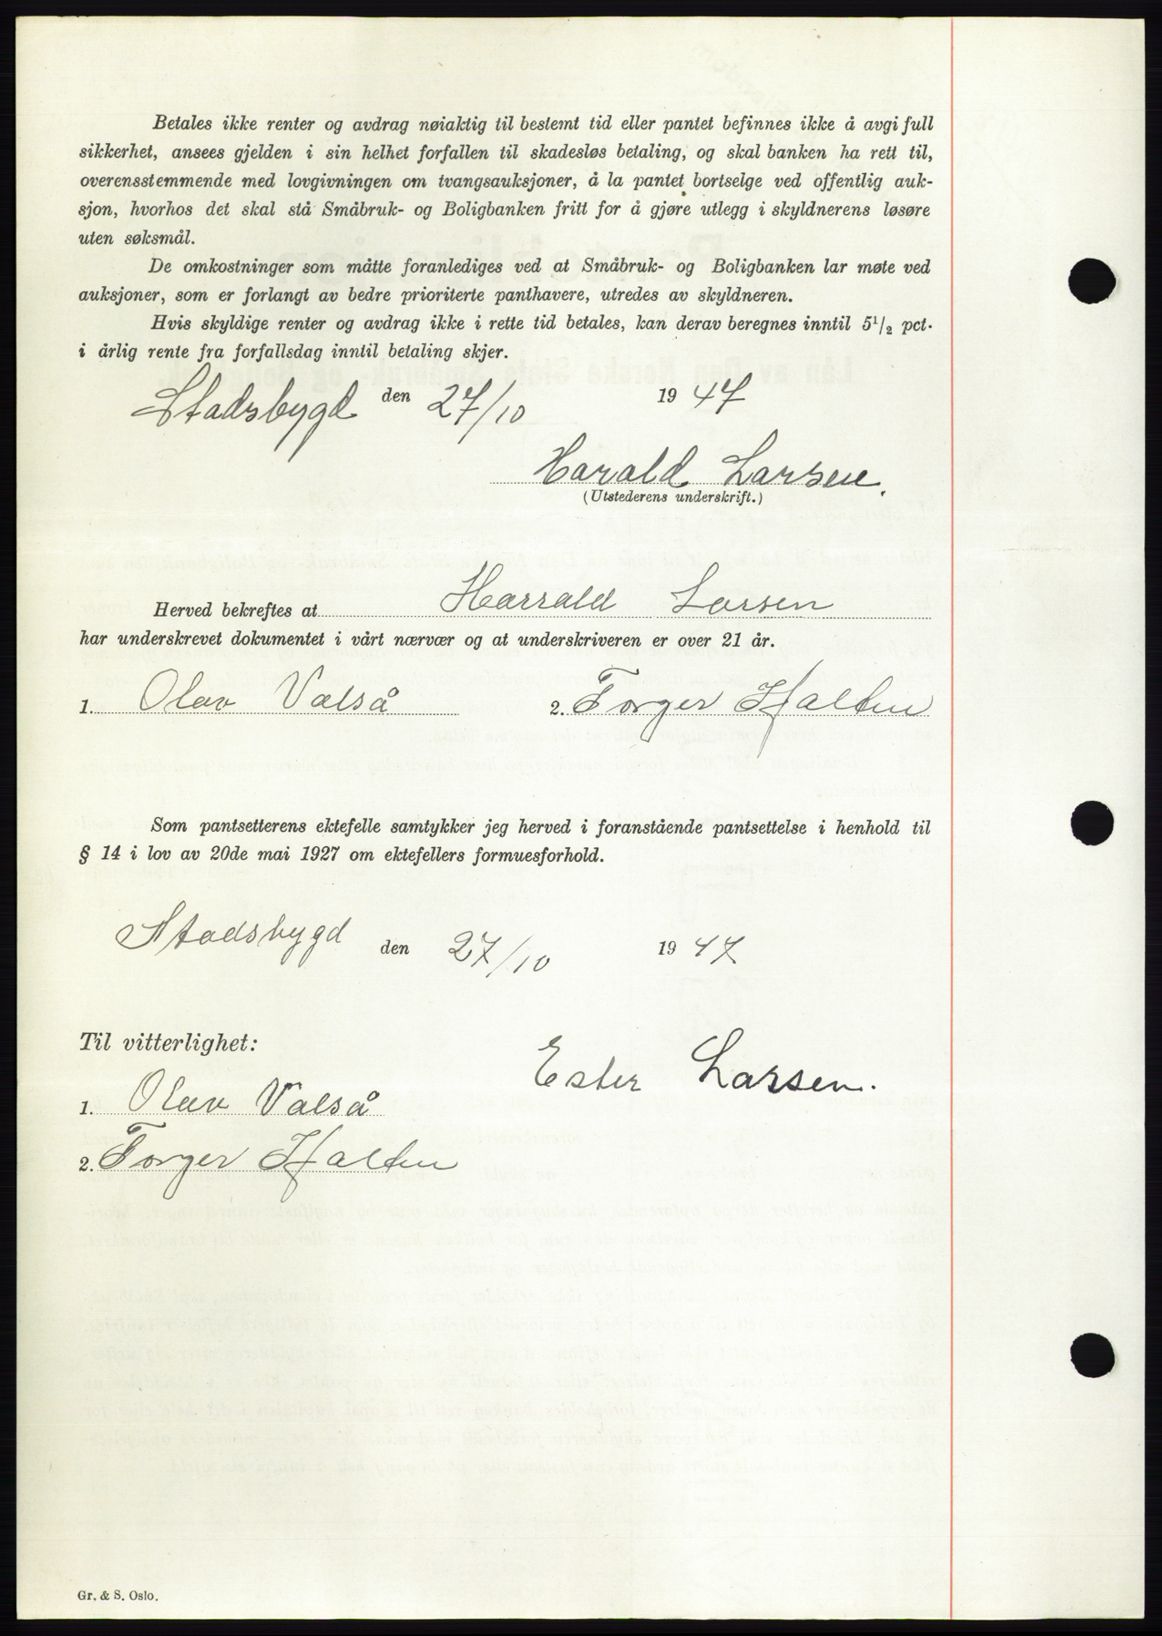 Betales ikke renter og avdrag nøiaktig til bestemt tid eller pantet befinnes ikke å avgi full
sikkerhet, ansees gjelden i sin helhet forfallen til skadesløs betaling, og skal banken ha rett til,
overensstemmende med lovgivningen om tvangsauksjoner, å la pantet bortselge ved offentlig auk-
sjon, hvorhos det skal stå Småbruk- og Boligbanken fritt for å gjøre utlegg i skyldnerens løsøre
uten søksmål.
De omkostninger som måtte foranlediges ved at Småbruk- og Boligbanken lar møte ved
auksjoner, som er forlangt av bedre prioriterte panthavere, utredes av skyldneren.
Hvis skyldige renter og avdrag ikke i rette tid betales, kan derav beregnes inntil 5 1/2 pct.
i årlig rente fra forfallsdag inntil betaling skjer.
Stadsbygd den 27/10 1947
Harald Larsen.
(Utstederens underskrift.)
Herved bekreftes at Harrald Larsen
har underskrevet dokumentet i vårt nærvær og at underskriveren er over 21 år.
1. Olav Valså 2. Torger Halten
Som pantsetterens ektefelle samtykker jeg herved i foranstående pantsettelse i henhold til
§ 14 i lov av 20de mai 1927 om ektefellers formuesforhold.
Stadsbygd den 27/10 1947
Til vitterlighet:
Ester Larsen.
1. Olav Valså
2. Torger Halten
Gr. & S. Oslo.